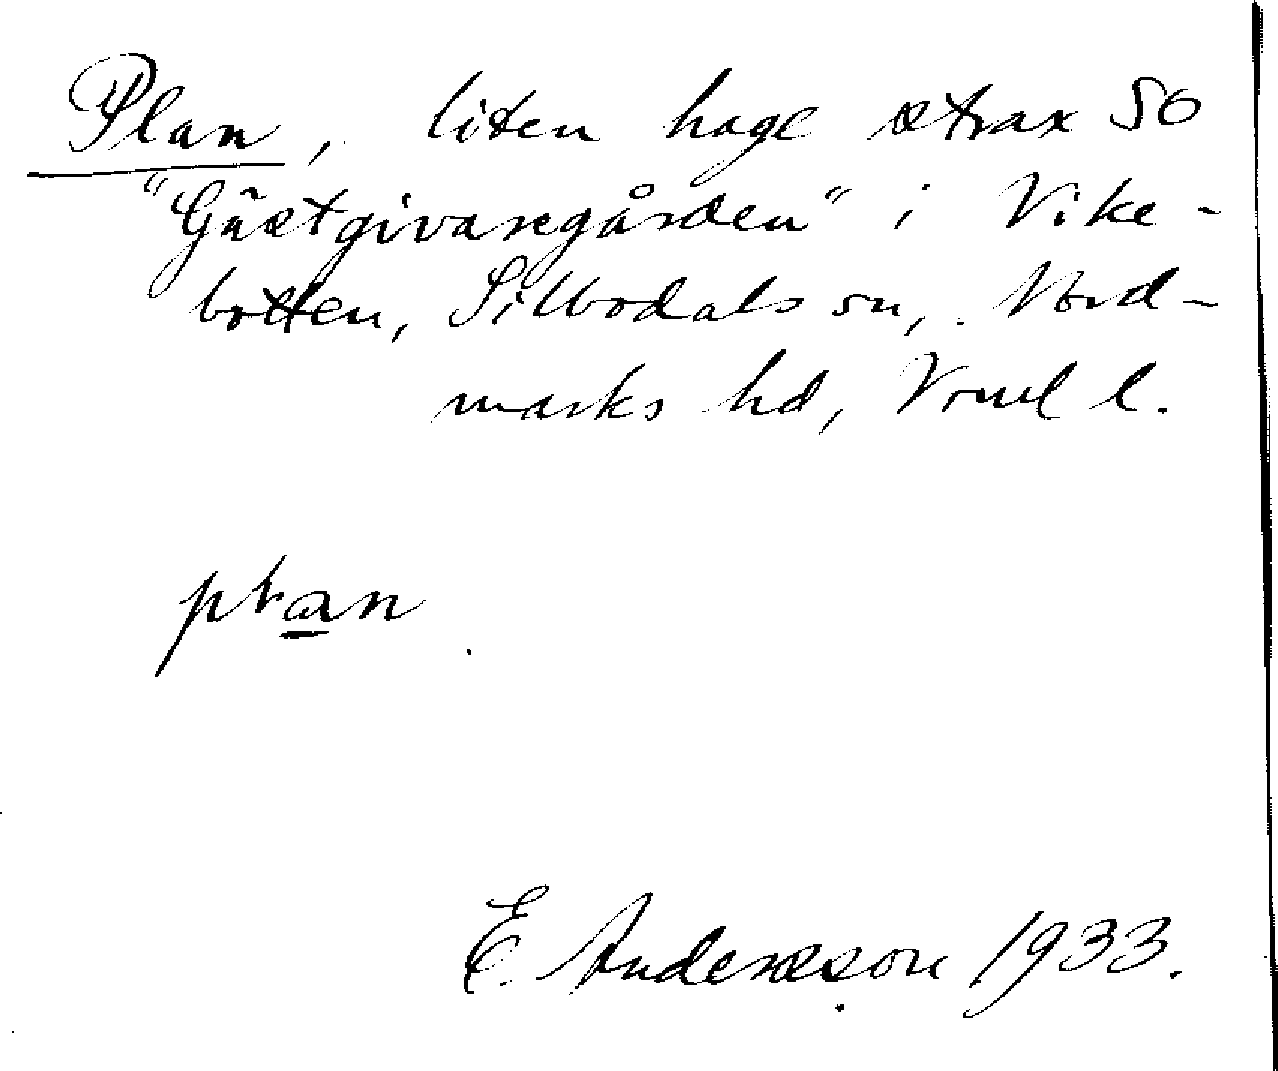 Plan, liten hage strax SO
"Gästgivaregården" i Vike-
botten, Silbodals sn, Nord-
marks hd, Vrml l.
pƚan
E. Andersson 1933.